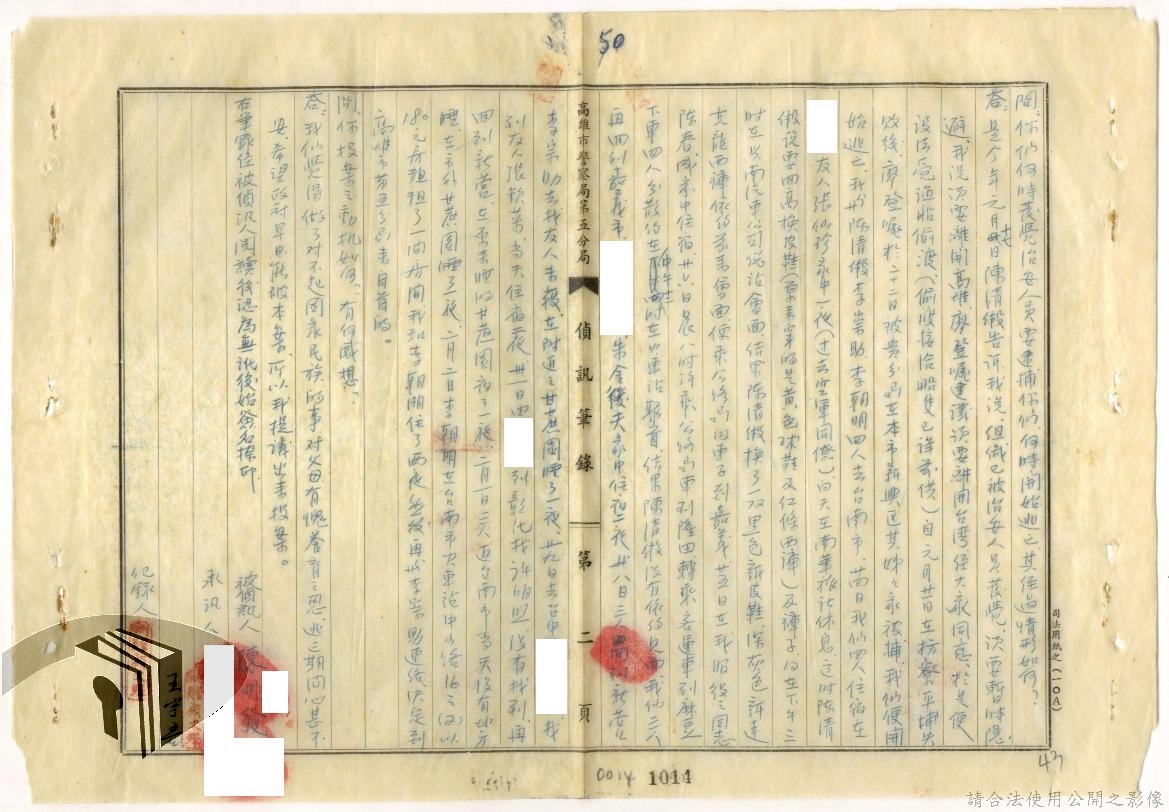 50
司法用紙之(一〇A)
問:你們何時發覺治安人員要逮捕你們,何時開始逃亡,其經過情形如何?
答:是今年元月十七日陳清緞告訴我說組織已被治安人員發覺,須要暫時隱
避,我說須要離開高雄,廖登囑建議須要離開台灣,經大家同意,於是便
設法覓通船偷渡(偷渡接洽船隻已詳前供)自元月廿日在枋寮平埔失
敗後,廖登囑於二十二日被貴分局在本市新興區其姊々家被捕,我們便開
始逃亡,我與陳清緞李崇助李朝明四人去台南市,廿四日我們四人住宿在
友人張仙珍家中一夜(過去空軍同僚)白天在南華旅社休息,這時陳清
緞說要回高換皮鞋(原來穿的是黃色球鞋及紅條西褲)及褲子,約在下午三
時在台南汽車公司總站會面,結果陳清緞換了一双黑色新皮鞋深灰色新達
克龍西褲依約前來會面便乘公路局的車子到嘉義,廿五日在我服役之同志
陳春成家中住宿,廿六日晨八時許乘公路局車到隆田轉乘客運車到麻豆
下車四人分散約在 時在火車站聚首,結果陳清緞沒有依約見面,我們三人
再回到嘉義市 朱金 夫家中住宿一夜,廿八日三人 到新營
高雄市警察局第五分局
偵訊筆錄
第二頁
李崇助去找友人未 ,在附近之甘蔗園睡了一夜,廿九日去台中 我
到友人張欽榮 當天住宿 夜,卅一日 到彰化找許明 沒有找到,再
回到新營,在原來睡的甘蔗園夜了一夜,二月一日三人迈台南市,當天沒有地方
睡,在市外甘蔗園睡了一夜,二月二日李朝明在台南市火車站中山路 以
180元房租租了一間房間,我和李朝明住了兩夜,然後再 李崇助連絡決定到
高雄市第五分局來自首的。
問:你投案之動机如何?有何感想?
答:我們覺得做了对不起国家民族的事对父母有愧養育之恩,逃亡期间心甚不
安,希望政府早日能破本案,所以我提議出來投案。
右筆錄經被偵訊人閱讀後認為無訛後始簽名捺印
被偵訊人
承訊人
紀錄人
0014 1014
43
請合法使用公開之影像